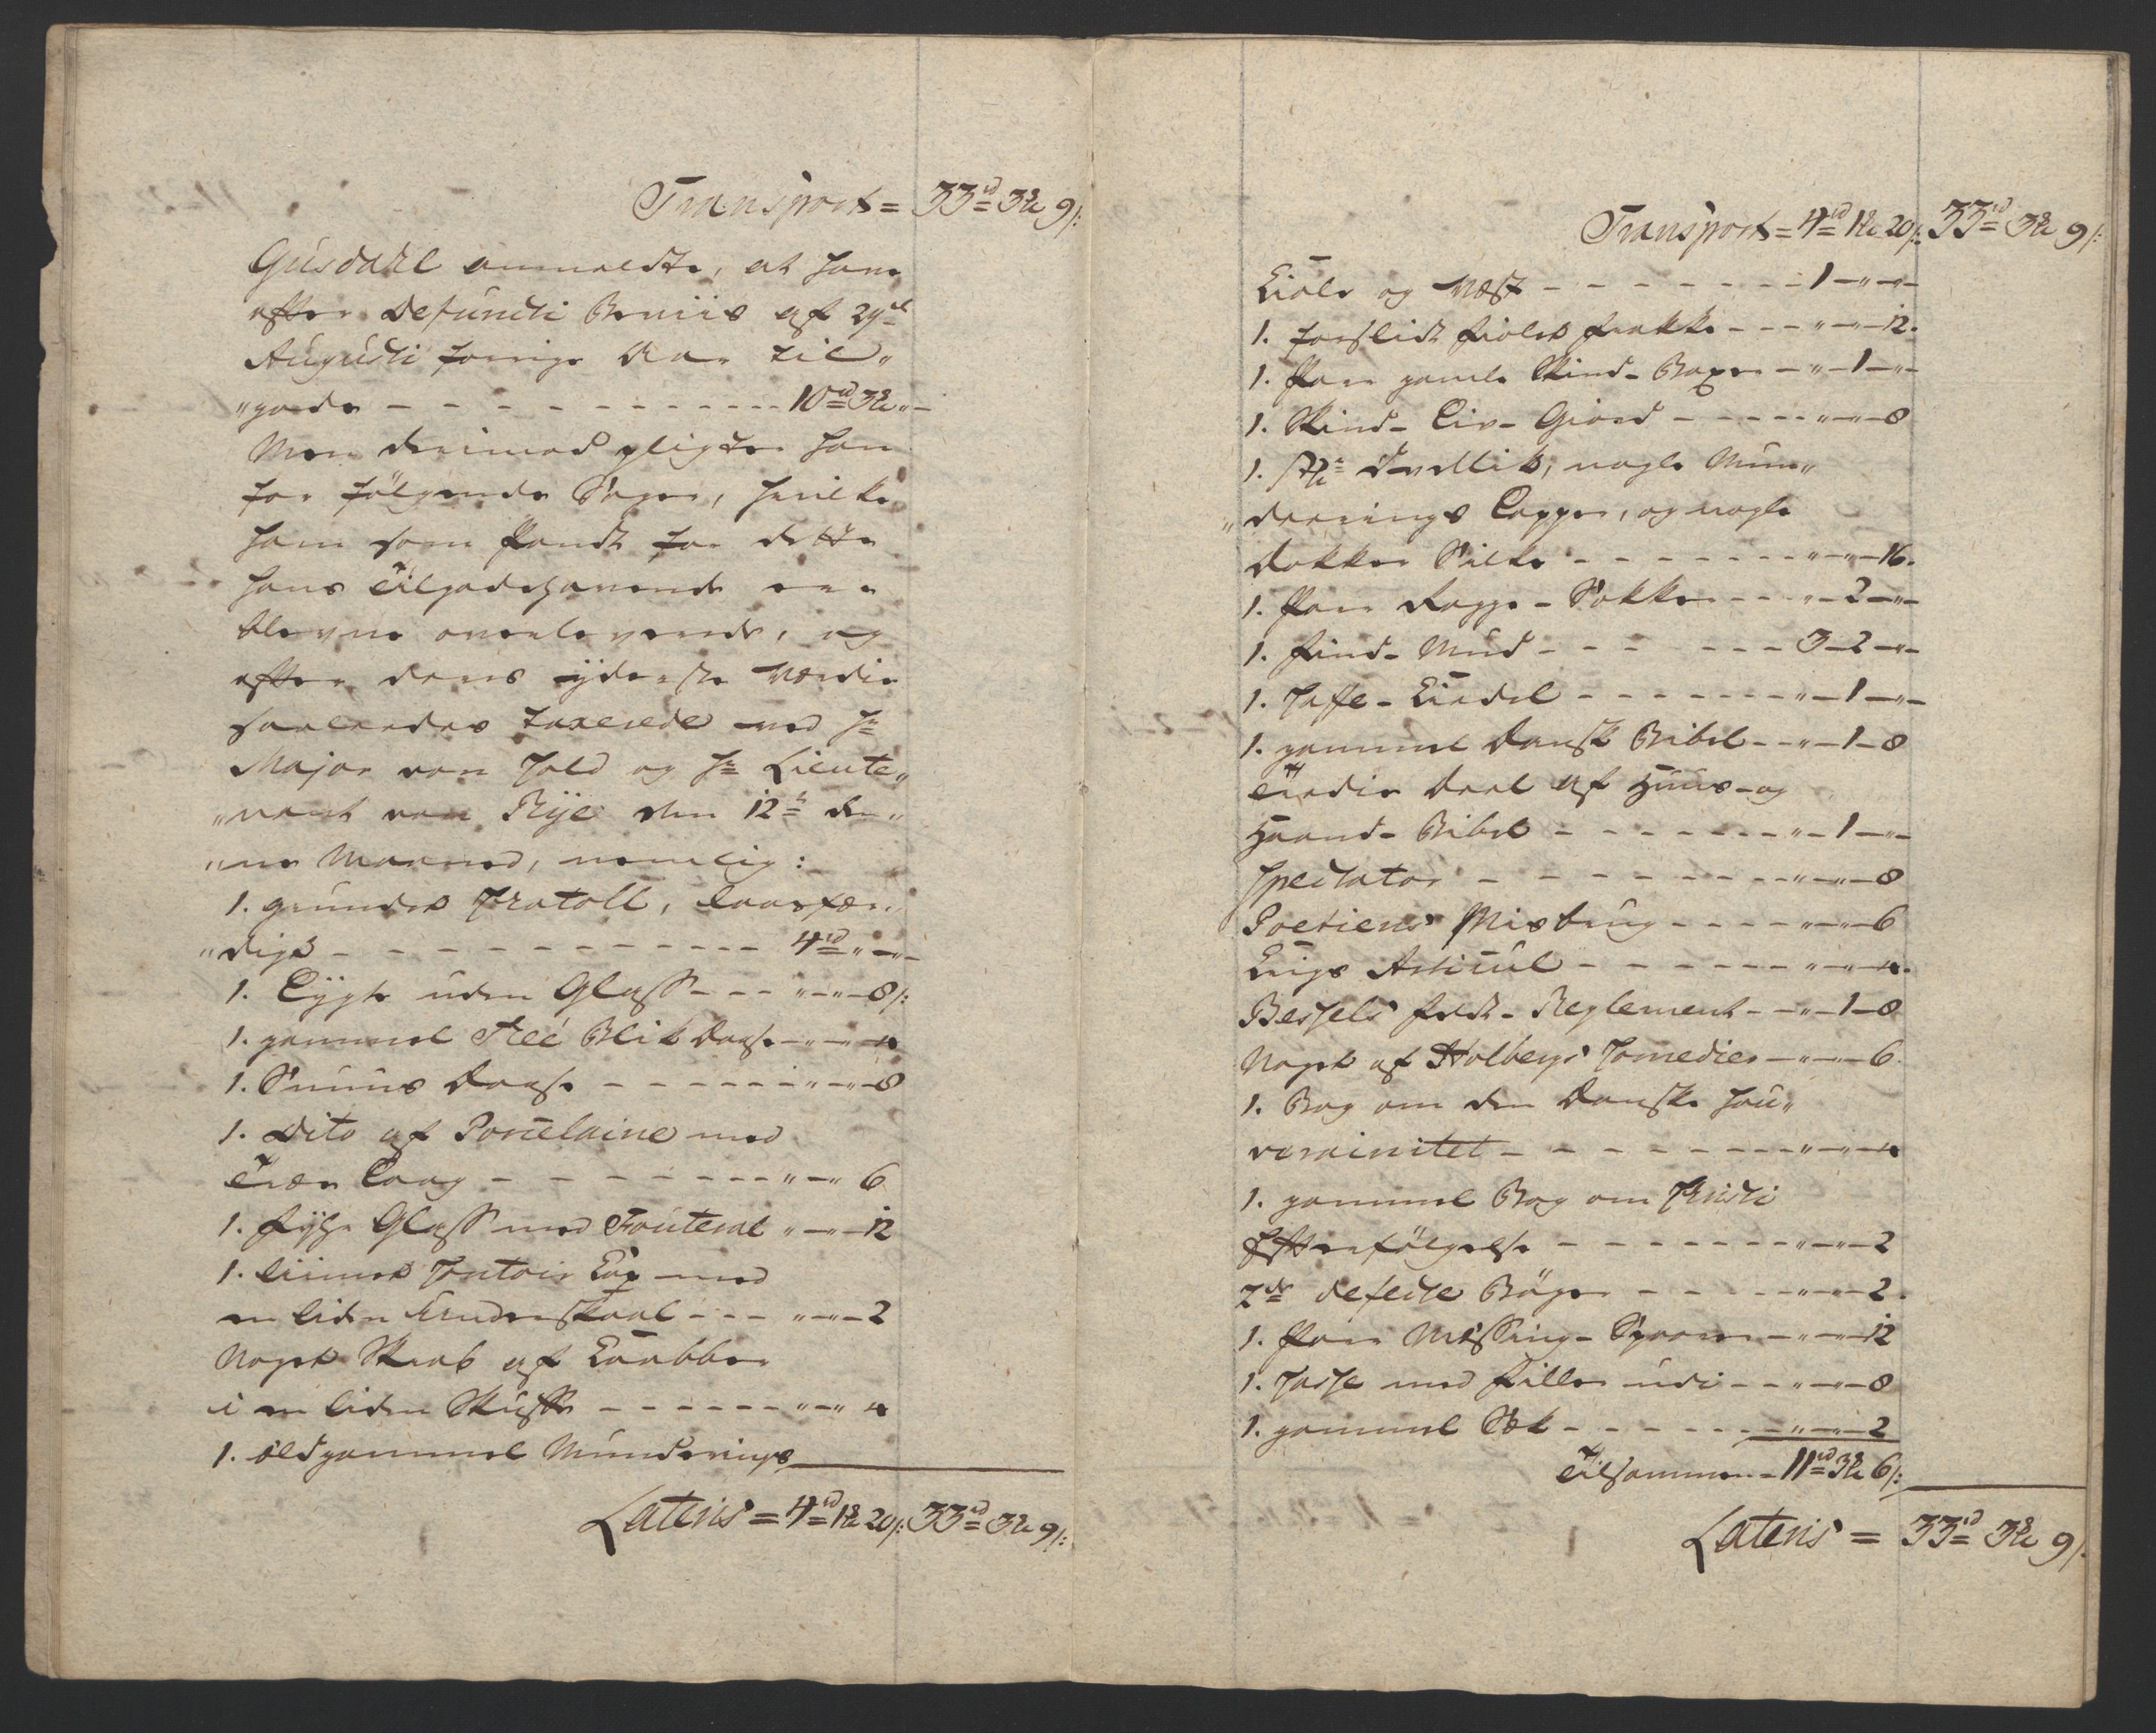 Transport = 33rd 3 9/:
Gusdahl anmeldte, at have
efter Defuncti Beviis af 29de
Augusti forrige Aar til„
„gode - - - - - - - - - - - 10rd 3 „-
Men derimod pligter han
for følgende Sager, hvilke
ham som Pandt for dette
hans Tilgodehavende ere
blevne overleverede, og
efter deres yderste Værdie
saaledes taxerede ved Hr
Major von Told og Hr Lieute„
„nant von Rye den 12te den„
„ne Maaned, nemlig:
1. grundet Protoll, laasfær„
„digt - - - - - - - - - - - 4rd „-„-
1. Lygte uden Glass - - - „-„-8/:
1. gammel Thee Blik Daase - „-„-4
1. Snuus Daase - - - - - - „-„-8
1. Dito af Porcelaine med
Træe Laag - - - - - - - „-„- 6
1. Lyse Glass med Fouteral „-„-12
1. liimet Contoir med
en liden Krudenskaal - - - „-„-2
Noget Skrab af Knabber
i en liden Skuffe - - - - - - „-„- 4
1. ældgammel Munderings
Lateris = 4rd 1 20/: 33rd 3 9/:
Transport = 4rd 1 20/: 33rd 3 9/:
Kiole og Væst - - - - - - - 1-„-„-
1. forslidt fiolet frakke - - - „-„-12.
1. Par gamle Skind-Boxer - „-1-„-
1. Skind-Liv-Giord - - - - - „-„-8
1. Svedlik, nogle Mun„
„derings Lapper, og nogle
Dokker Silke - - - - - - - „-„-16.
1. Par Ragge-Sokker - - - „-2-„-
1. Find-Mud - - - - - - 3-2-„-
1. Caffe-Kiedel - - - - - - - „-1-„-
1. gammel Dansk Bibel - - „-1-8
Tredie Deel af Huus-og
Haand-Bibel - - - - - - - „-1-„-
Spectator - - - - - - - - „-„-8
Poesiens Misbrug - - - - „-„-6
Krigs Articul - - - - - - „-„-4.
Bessels feldt-Reglement - - „-1-8
Noget af Holbergs Comedier - „-„-6.
1. Bog om den Danske Sou„
verainitet - - - - - - - „-„-4
1. gammel Bog om Christi
Efterfølgelse - - - - - - - „-„-2
2de defecte Bøger - - - - - „-„-2.
1. Par Messing-Sporer - - „-„-12
1. Taske med Filler udi - - „-„-8
1. gammel Sæk - - - - - - „-„-2
Tilsammen - 11rd 3 6/:
Lateris = 33rd 3 9/: